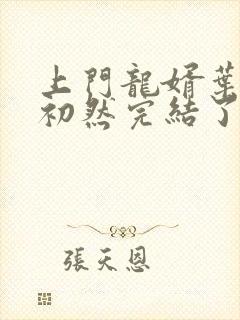 上門龍婿葉
初然完結了
張天恩